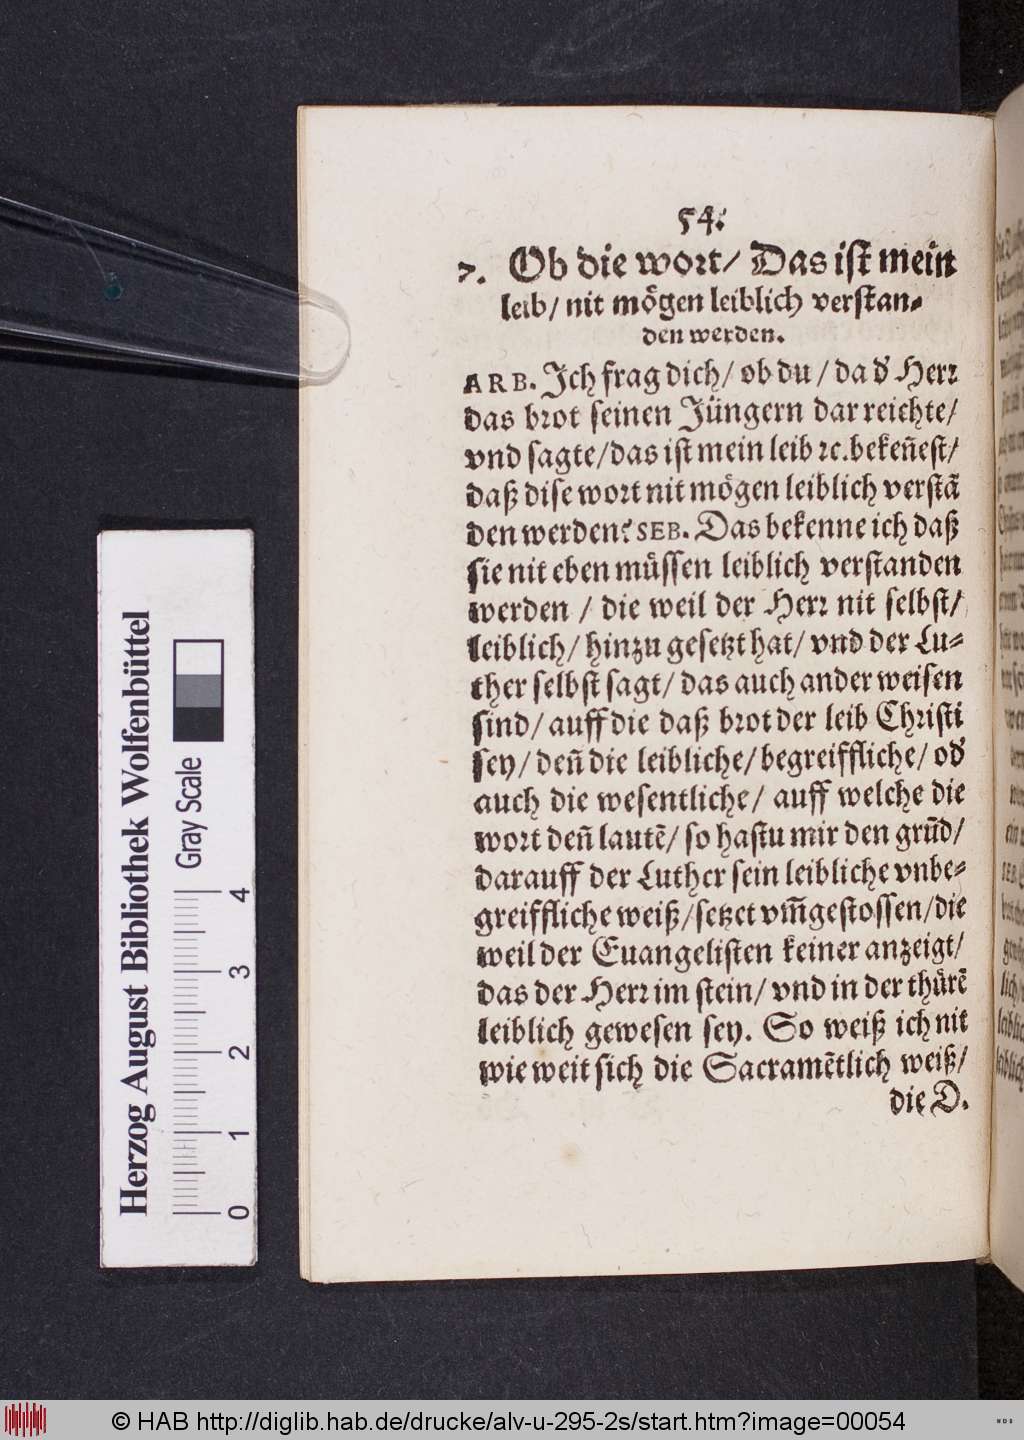 54.
7. Ob die wort/ Das ist mein
leib/ nit mögen leiblich verstan⸗
den werden.
ARB. Jch frag dich/ ob du / da d' Herr
das brot seinen Jüngern dar reichte/
vnd sagte/das ist mein leib ꝛc.bekeñest/
daß dise wort nit mögen leiblich verstã
den werden? SEB. Das bekenne ich daß
sie nit eben müssen leiblich verstanden
werden / die weil der Herr nit selbst/
leiblich/ hinzu gesetzt hat/ vnd der Lu⸗
ther selbst sagt/ das auch ander weisen
sind/ auff die daß brot der leib Christi
sey/ deñ die leibliche/ begreiffliche/ od'
auch die wesentliche/ auff welche die
wort deñ lautẽ/ so hastu mir den grũd/
darauff der Luther sein leibliche vnbe⸗
greiffliche weiß/setzet vm̃gestossen/die
weil der Euangelisten keiner anzeigt/
das der Herr im stein/ vnd in der thürẽ
leiblich gewesen sey. So weiß ich nit
wie weit sich die Sacramẽtlich weiß/
die D.
Herzog August Bibliothek Wolfenbüttel
Gray Scale
0 1 2 3 4
© HAB http://diglib.hab.de/drucke/alv-u-295-2s/start.htm?image=00054